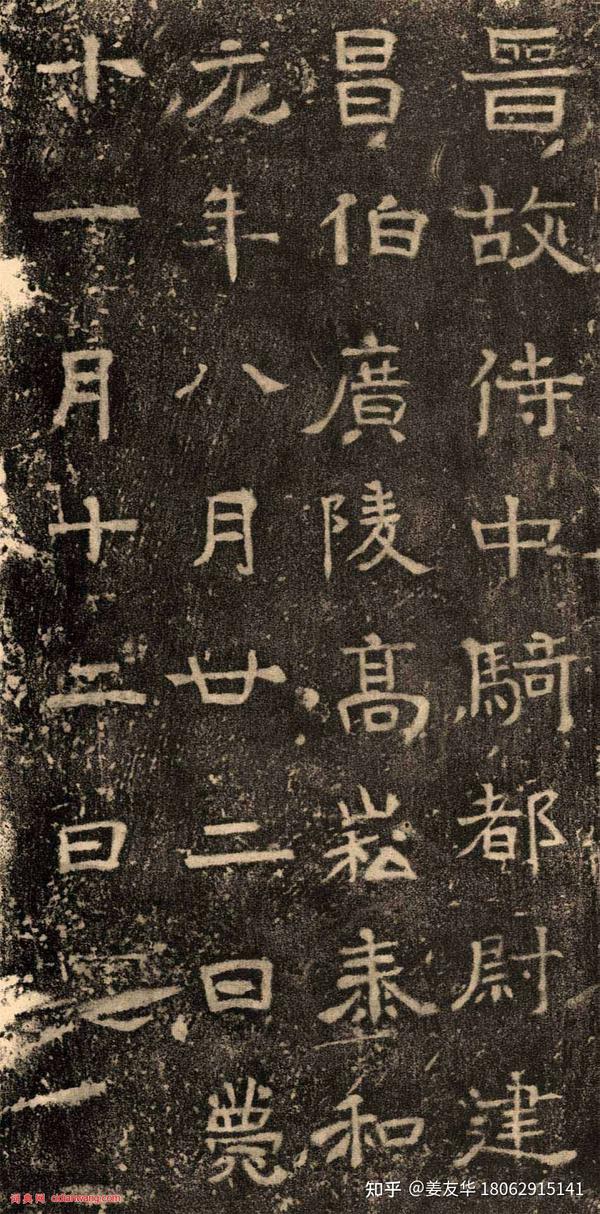 晉故侍中騎都尉建
昌伯廣陵髙崧泰和
元年八月廿二日薨
十一月十二日
词典网 cidianwang.com
知乎 @姜友华 18062915141